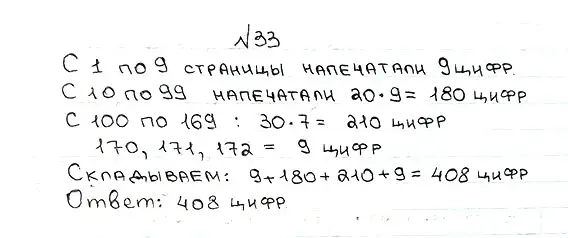 №33
С 1 по 9 страницы напечатали 9 цифр.
С 10 по 99 напечатали 20·9= 180 цифр
С 100 по 169 : 30·7= 210 цифр
170, 171, 172 = 9 цифр
Складываем: 9+180+210+9= 408 цифр
Ответ: 408 цифр.